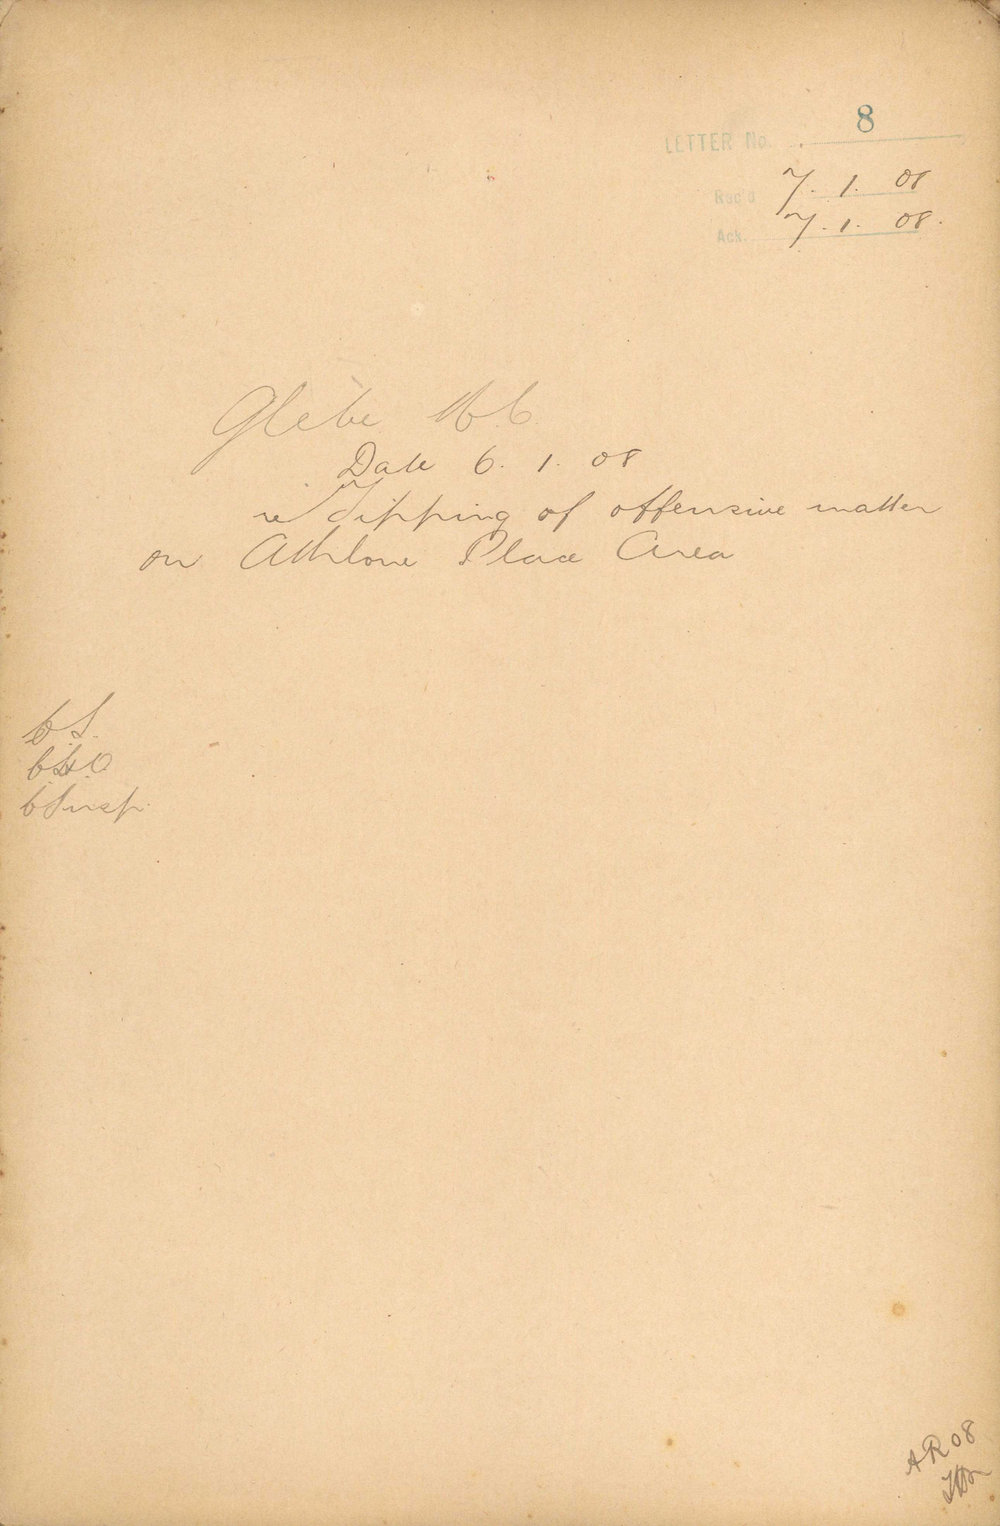 LETTER No. 8
Rec'd 7. 1. 08
Ack. 7. 1. 08.
Glebe M.C.
Date 6. 1. 08
re Tipping of offensive matter
on Athlone Place Area
C.S.
C.H.O.
C.Insp.
AR 08